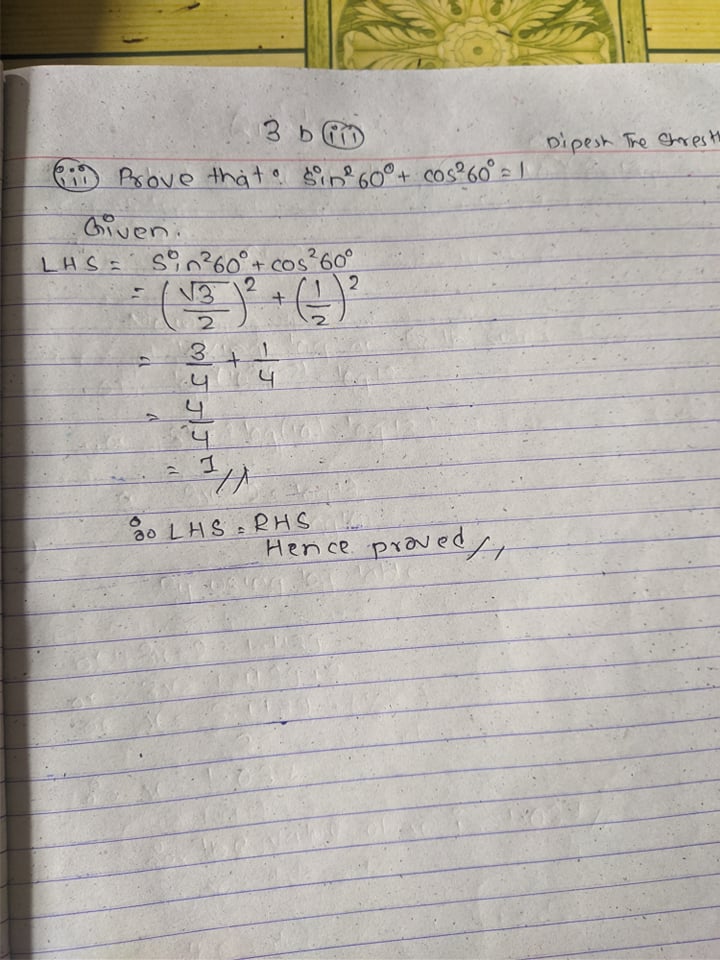 3 b (iii)
Dipesh
(iii) Prove that: sin²60° + cos²60° = 1
Given.
LHS = sin²60° + cos²60°
= (√3/2)² + (1/2)²
= 3/4 + 1/4
= 4/4
= 1//
∴ LHS = RHS
Hence proved//